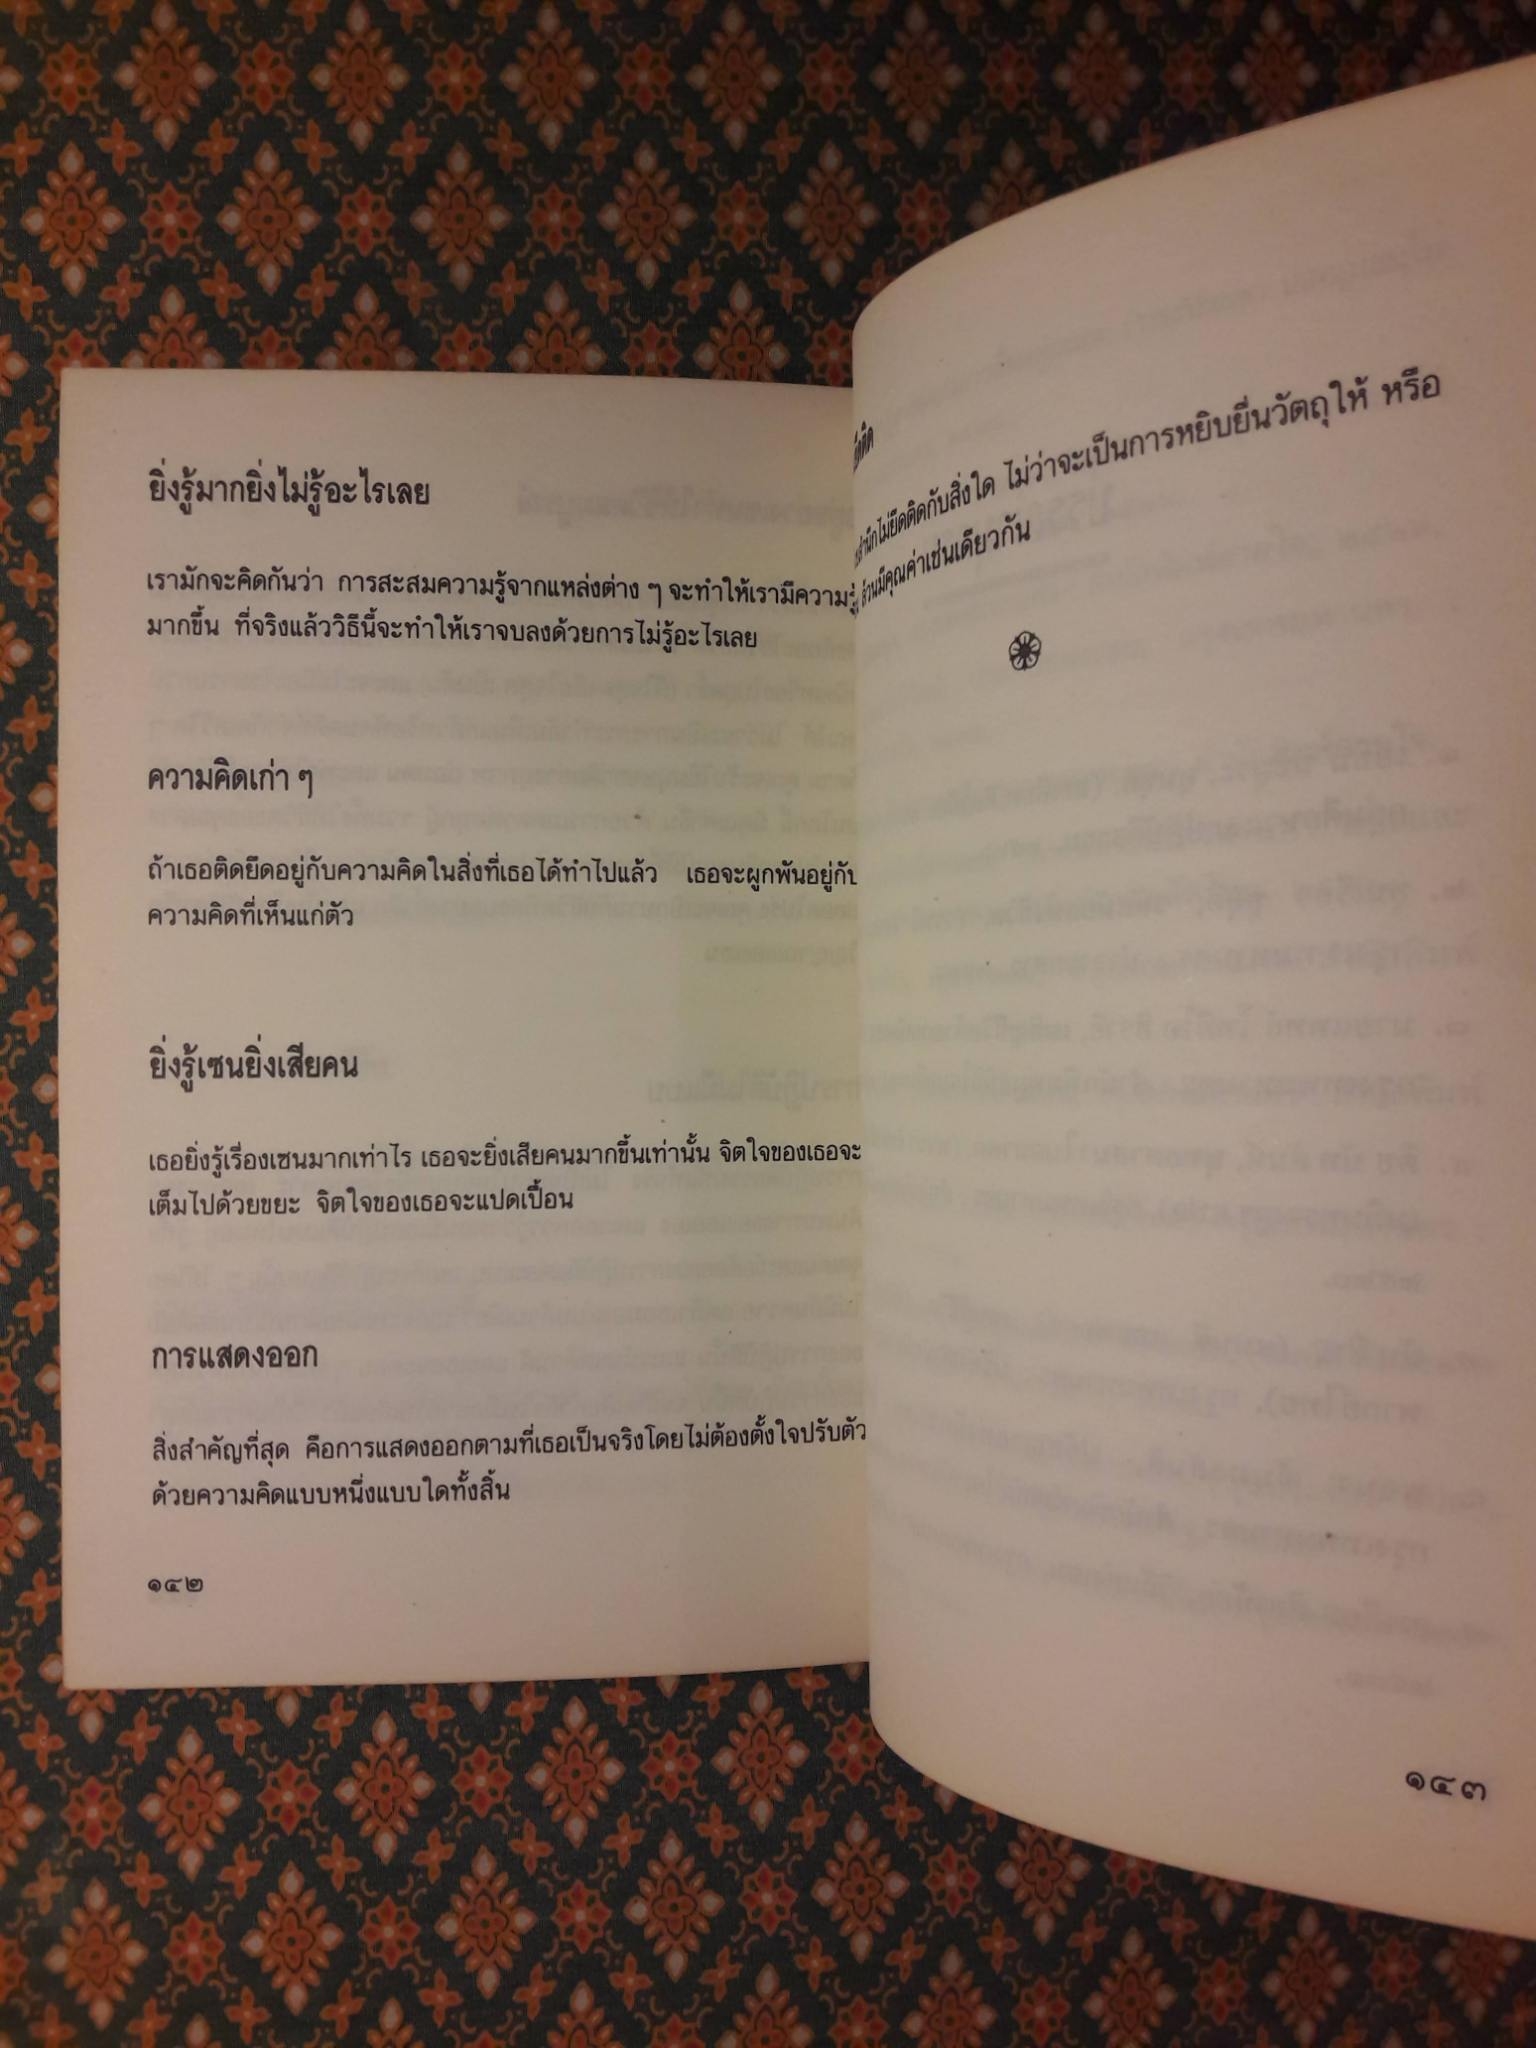 ยิ่งรู้มากยิ่งไม่รู้อะไรเลย
เรามักจะคิดกันว่า การสะสมความรู้จากแหล่งต่าง ๆ จะทำให้เรามีความรู้
มากขึ้น ที่จริงแล้ววิธีนี้จะทำให้เราจบลงด้วยการไม่รู้อะไรเลย
ความคิดเก่า ๆ
ถ้าเธอติดยึดอยู่กับความคิดในสิ่งที่เธอได้ทำไปแล้ว เธอจะผูกพันอยู่กับ
ความคิดที่เห็นแก่ตัว
ยิ่งรู้เซนยิ่งเสียคน
เธอยิ่งรู้เรื่องเซนมากเท่าไร เธอจะยิ่งเสียคนมากขึ้นเท่านั้น จิตใจของเธอจะ
เต็มไปด้วยขยะ จิตใจของเธอจะแปดเปื้อน
การแสดงออก
สิ่งสำคัญที่สุด คือการแสดงออกตามที่เธอเป็นจริงโดยไม่ต้องตั้งใจปรับตัว
ด้วยความคิดแบบหนึ่งแบบใดทั้งสิ้น
๑๔๒
ไม่ยึดติดกับสิ่งใด ไม่ว่าจะเป็นการหยิบยื่นวัตถุให้ หรือ
ล้วนมีคุณค่าเช่นเดียวกัน
๑๔๓